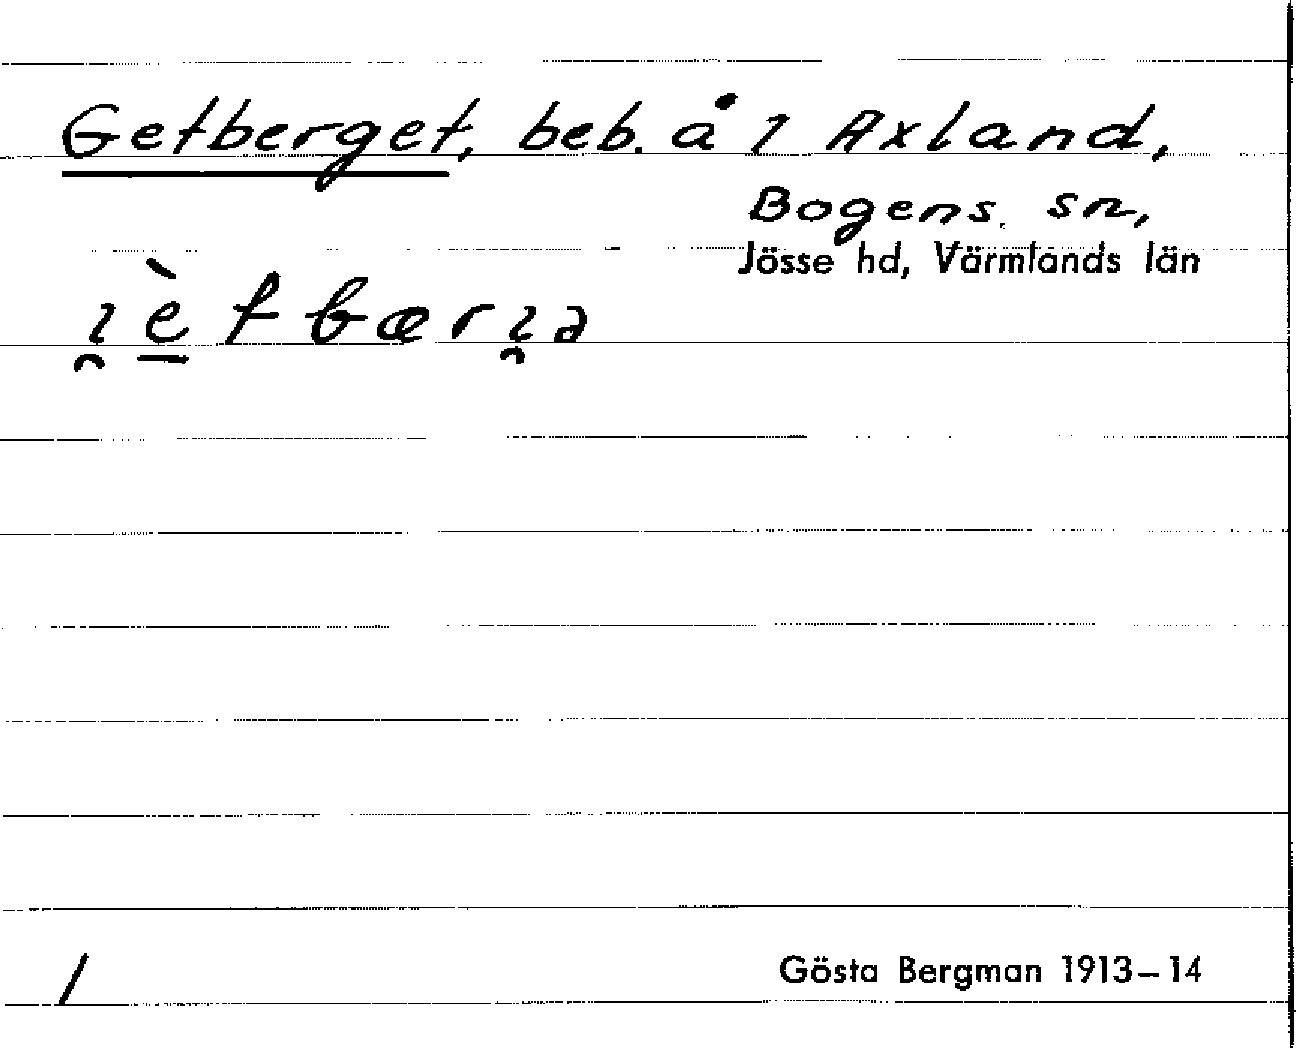 Getberget, beb. å 1 Axland,
Bogens. sn,
Jösse hd, Värmlands län
ı̯è̠tbærı̯a
/
Gösta Bergman 1913–14